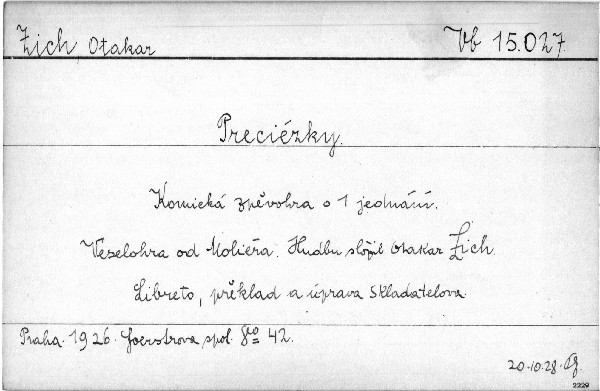 Zich Otakar
Vb 15.027.
Preciézky.
Komická zpěvohra o 1 jednání.
Veselohra od Moliéra. Hudbu složil Otakar Zich.
Libreto, překlad a úprava skladatelova.
Praha. 1926. Foerstrova spol. 8° 42.
20.10.28.
2229